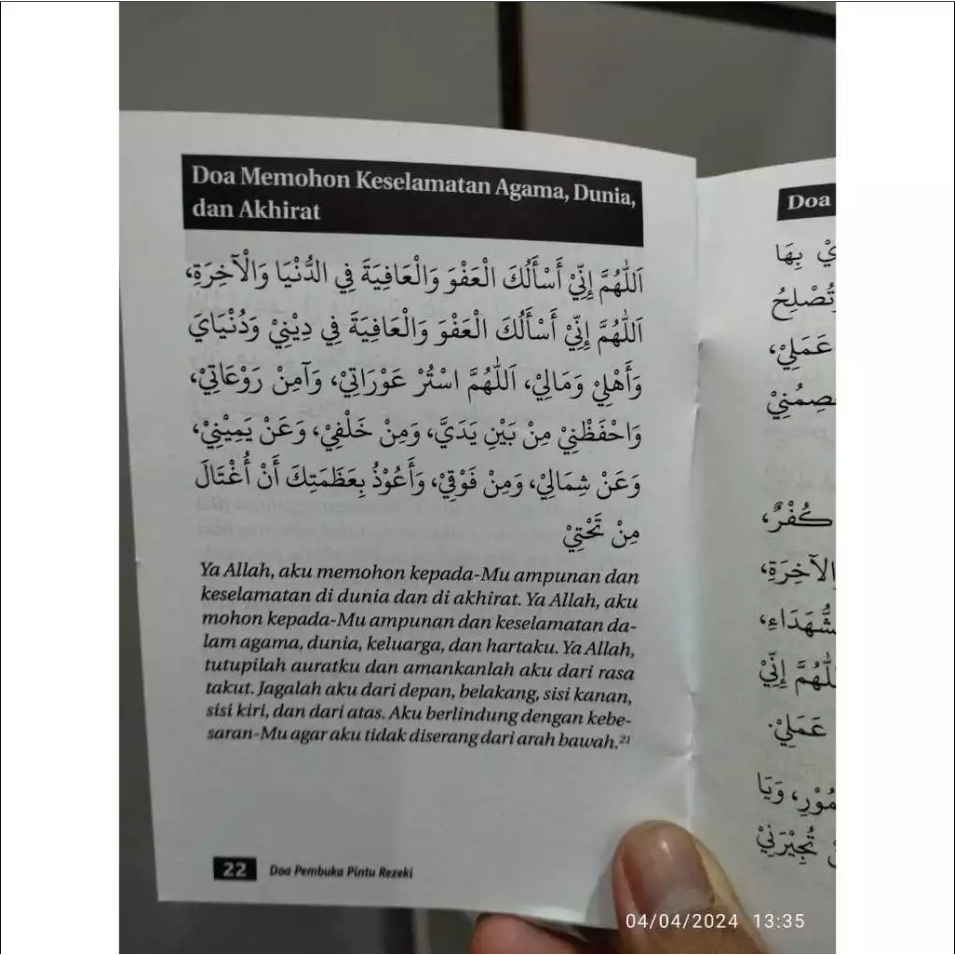 Doa Memohon Keselamatan Agama, Dunia,
dan Akhirat
اَللّٰهُمَّ إِنِّيْ أَسْأَلُكَ الْعَفْوَ وَالْعَافِيَةَ فِي الدُّنْيَا وَالْآخِرَةِ،
اَللّٰهُمَّ إِنِّيْ أَسْأَلُكَ الْعَفْوَ وَالْعَافِيَةَ فِي دِيْنِيْ وَدُنْيَايَ
وَأَهْلِيْ وَمَالِيْ، اَللّٰهُمَّ اسْتُرْ عَوْرَاتِيْ، وَآمِنْ رَوْعَاتِيْ،
وَاحْفَظْنِيْ مِنْ بَيْنِ يَدَيَّ، وَمِنْ خَلْفِيْ، وَعَنْ يَمِيْنِيْ،
وَعَنْ شِمَالِيْ، وَمِنْ فَوْقِيْ، وَأَعُوْذُ بِعَظَمَتِكَ أَنْ أُغْتَالَ
مِنْ تَحْتِيْ
Ya Allah, aku memohon kepada-Mu ampunan dan
keselamatan di dunia dan di akhirat. Ya Allah, aku
mohon kepada-Mu ampunan dan keselamatan da-
lam agama, dunia, keluarga, dan hartaku. Ya Allah,
tutupilah auratku dan amankanlah aku dari rasa
takut. Jagalah aku dari depan, belakang, sisi kanan,
sisi kiri, dan dari atas. Aku berlindung dengan kebe-
saran-Mu agar aku tidak diserang dari arah bawah.²¹
22 Doa Pembuka Pintu Rezeki
Doa
بِهَا
تُصْلِحُ
عَمَلِيْ،
كُفْرٌ،
إِنِّيْ
عَمَلِيْ.
وَيَا
تُجِيْرَنِيْ
04/04/2024 13:35